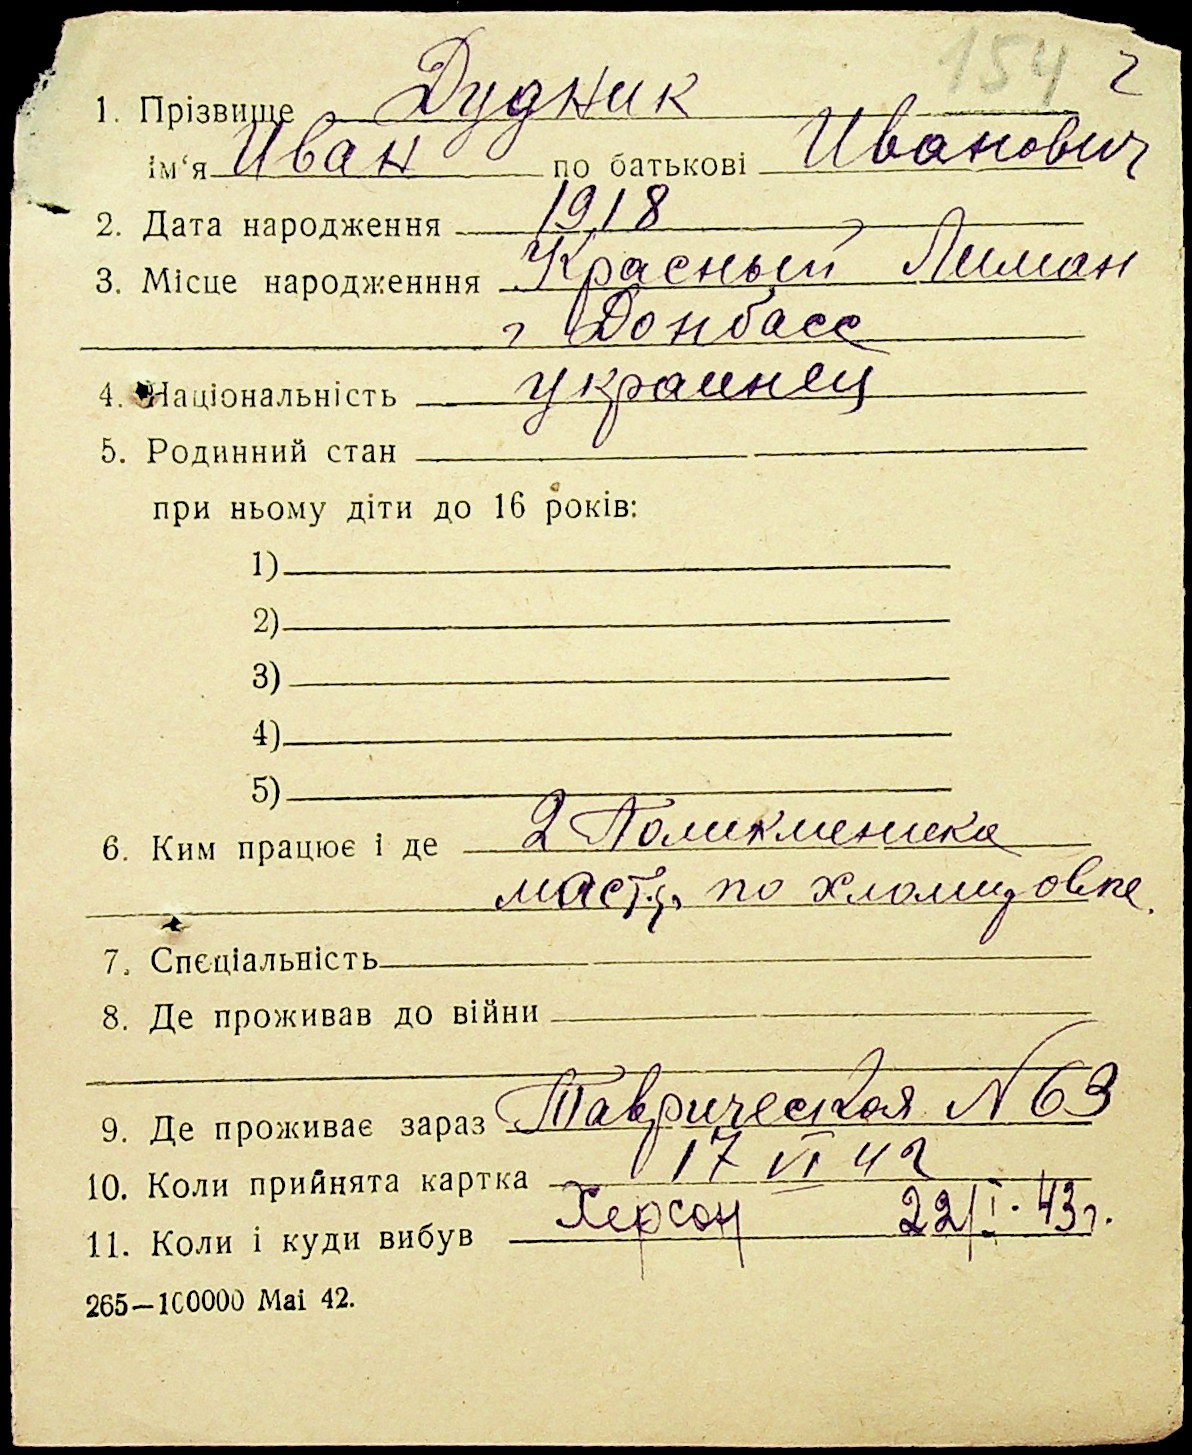 154 2
1. Прізвище Дудник
ім'я Иван по батькові Иванович
2. Дата народження 1918
3. Місце народженння Красный Лиман
г Донбасс
4. Національність украинец
5. Родинний стан
при ньому діти до 16 років:
1)
2)
3)
4)
5)
6. Ким працює і де 2 Поликлиника
по
7. Спеціальність
8. Де проживав до війни
9. Де проживає зараз Таврическая N 63
10. Коли прийнята картка 17 VI 42
11. Коли і куди вибув Херсон 22/I. 43г.
265—100000 Mai 42.